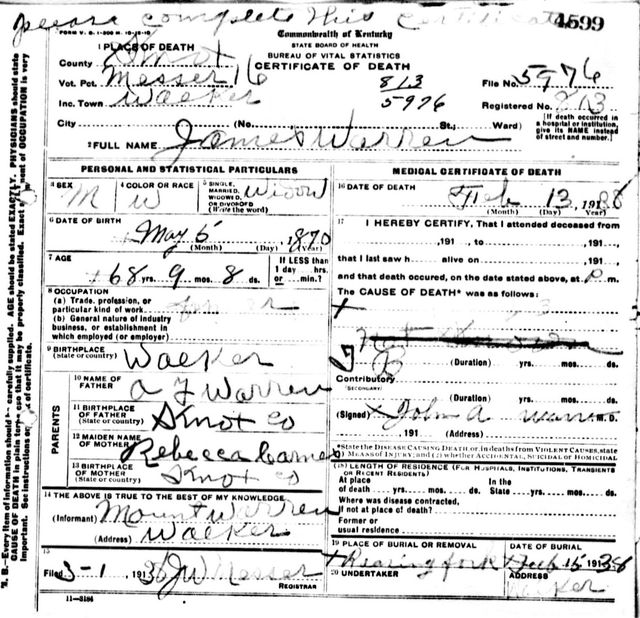 please complete this certificate 4599
FORM V. S. 1-500 M. 10-10-10
Commonwealth of Kentucky
STATE BOARD OF HEALTH
BUREAU OF VITAL STATISTICS
CERTIFICATE OF DEATH
1 PLACE OF DEATH
County Knot
Vot. Pct. Messer 16
Inc. Town Walker
City (No. St.; Ward)
813
5976
File No. 5976
Registered No. 813
[If death occurred in a hospital or institution, give its NAME instead of street and number.]
2 FULL NAME James Warren
PERSONAL AND STATISTICAL PARTICULARS
3 SEX M
4 COLOR OR RACE W
5 SINGLE, MARRIED, WIDOWED, OR DIVORCED (Write the word) Widow
6 DATE OF BIRTH
May 5 1870
(Month) (Day) (Year)
7 AGE
68 yrs. 9 mos. 8 ds.
If LESS than 1 day hrs. or min.?
8 OCCUPATION
(a) Trade, profession, or particular kind of work
(b) General nature of industry business, or establishment in which employed (or employer)
9 BIRTHPLACE (State or country) Walker
PARENTS
10 NAME OF FATHER Warren
11 BIRTHPLACE OF FATHER (State or country) Knot Co
12 MAIDEN NAME OF MOTHER Rebecca Carnes
13 BIRTHPLACE OF MOTHER (State or country) Knot Co
14 THE ABOVE IS TRUE TO THE BEST OF MY KNOWLEDGE
(Informant) Mount Warren
(Address) Walker
15
Filed 3-1 1938 J W Messer
REGISTRAR
11-3184
MEDICAL CERTIFICATE OF DEATH
16 DATE OF DEATH
Feb 13 1938
(Month) (Day) (Year)
17 I HEREBY CERTIFY, That I attended deceased from
,191 , to ,191 ,
that I last saw h alive on ,191 ,
and that death occured, on the date stated above, at P m.
The CAUSE OF DEATH* was as follows:
(Duration) yrs. mos. ds.
Contributory
(SECONDARY)
(Duration) yrs. mos. ds.
(Signed) John A Warren M. D.
191 (Address)
*State the DISEASE CAUSING DEATH or, in deaths from VIOLENT CAUSES, state (1) MEANS OF INJURY; and (2) whether ACCIDENTAL, SUICIDAL or HOMICIDAL
(18) LENGTH OF RESIDENCE (FOR HOSPITALS, INSTITUTIONS, TRANSIENTS OR RECENT RESIDENTS)
At place of death yrs. mos. ds. In the State yrs. mos. ds.
Where was disease contracted, if not at place of death?
Former or usual residence
19 PLACE OF BURIAL OR REMOVAL
DATE OF BURIAL
Feb 15 1938
20 UNDERTAKER
ADDRESS
Walker
N. B.—Every item of information should be carefully supplied. AGE should be stated EXACTLY. PHYSICIANS should state
CAUSE OF DEATH in plain terms so that it may be properly classified. Exact statement of OCCUPATION is very
important. See instructions on of certificate.